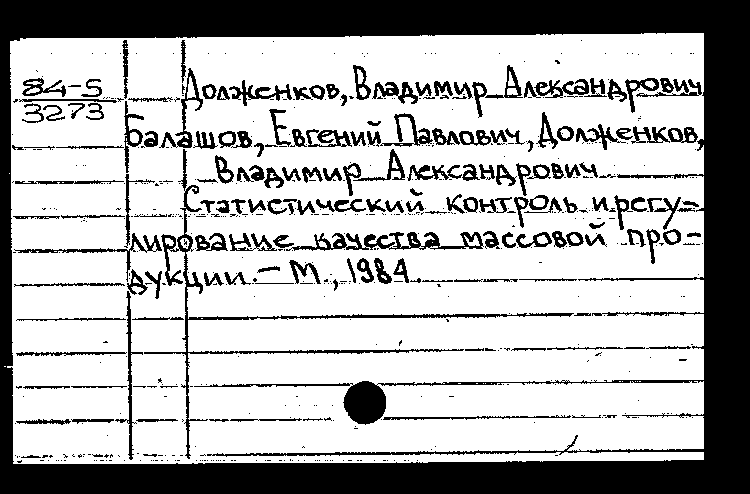 84-5
3273
Долженков, Владимир Александрович
Балашов, Евгений Павлович, Долженков,
Владимир Александрович
Статистический контроль и регу-
лирование качества массовой про-
дукции. – М., 1984.